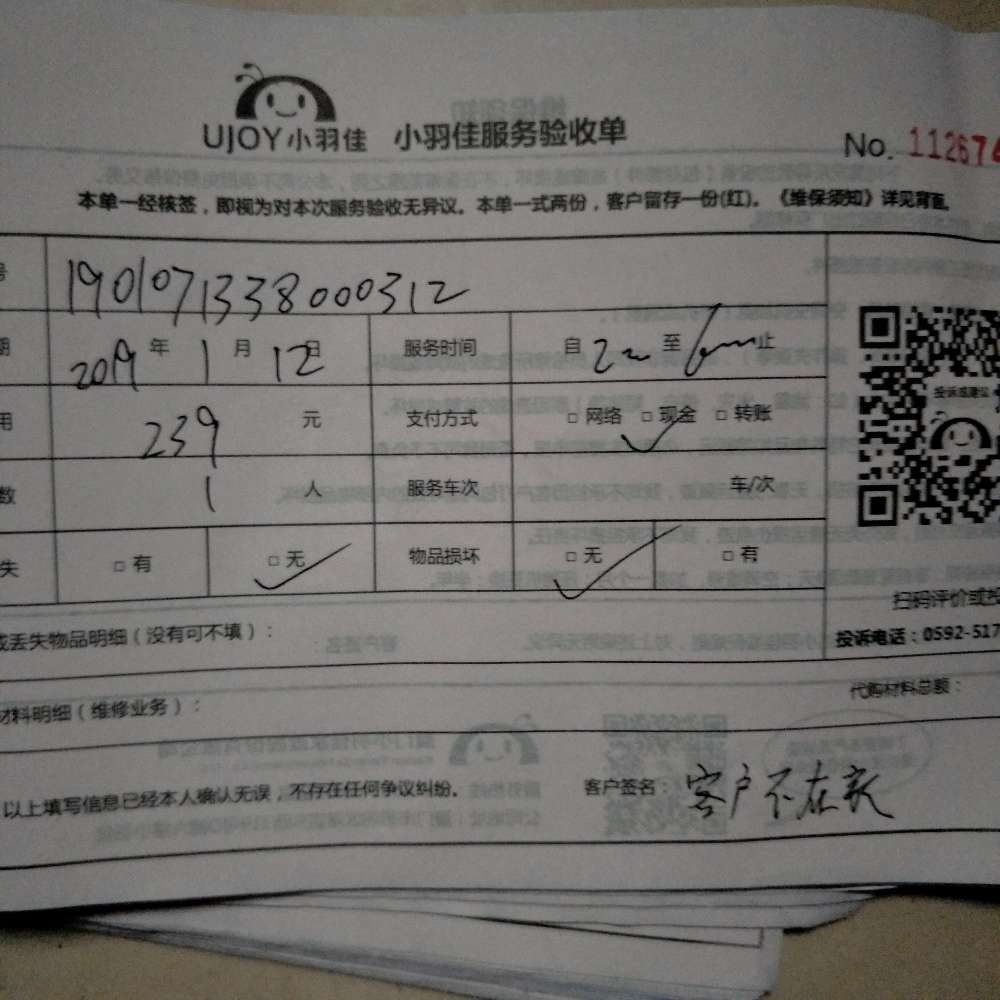 UJOY小羽佳 小羽佳服务验收单
No. 112674
本单一经核签，即视为对本次服务验收无异议。本单一式两份，客户留存一份(红)。《维保须知》详见背面
号 1901071338000312
期 2019 年 1 月 12 日 服务时间 自 至 止
用 239 元 支付方式 □ 网络 □ 现金 □ 转账
数 1 人 服务车次 车/次
失 □ 有 □ 无 物品损坏 □ 无 □ 有
投诉或建议
扫码评价或投
投诉电话：0592-517
或丢失物品明细（没有可不填）：
材料明细（维修业务）： 代购材料总额：
以上填写信息已经本人确认无误，不存在任何争议纠纷。 客户签名： 客户不在家